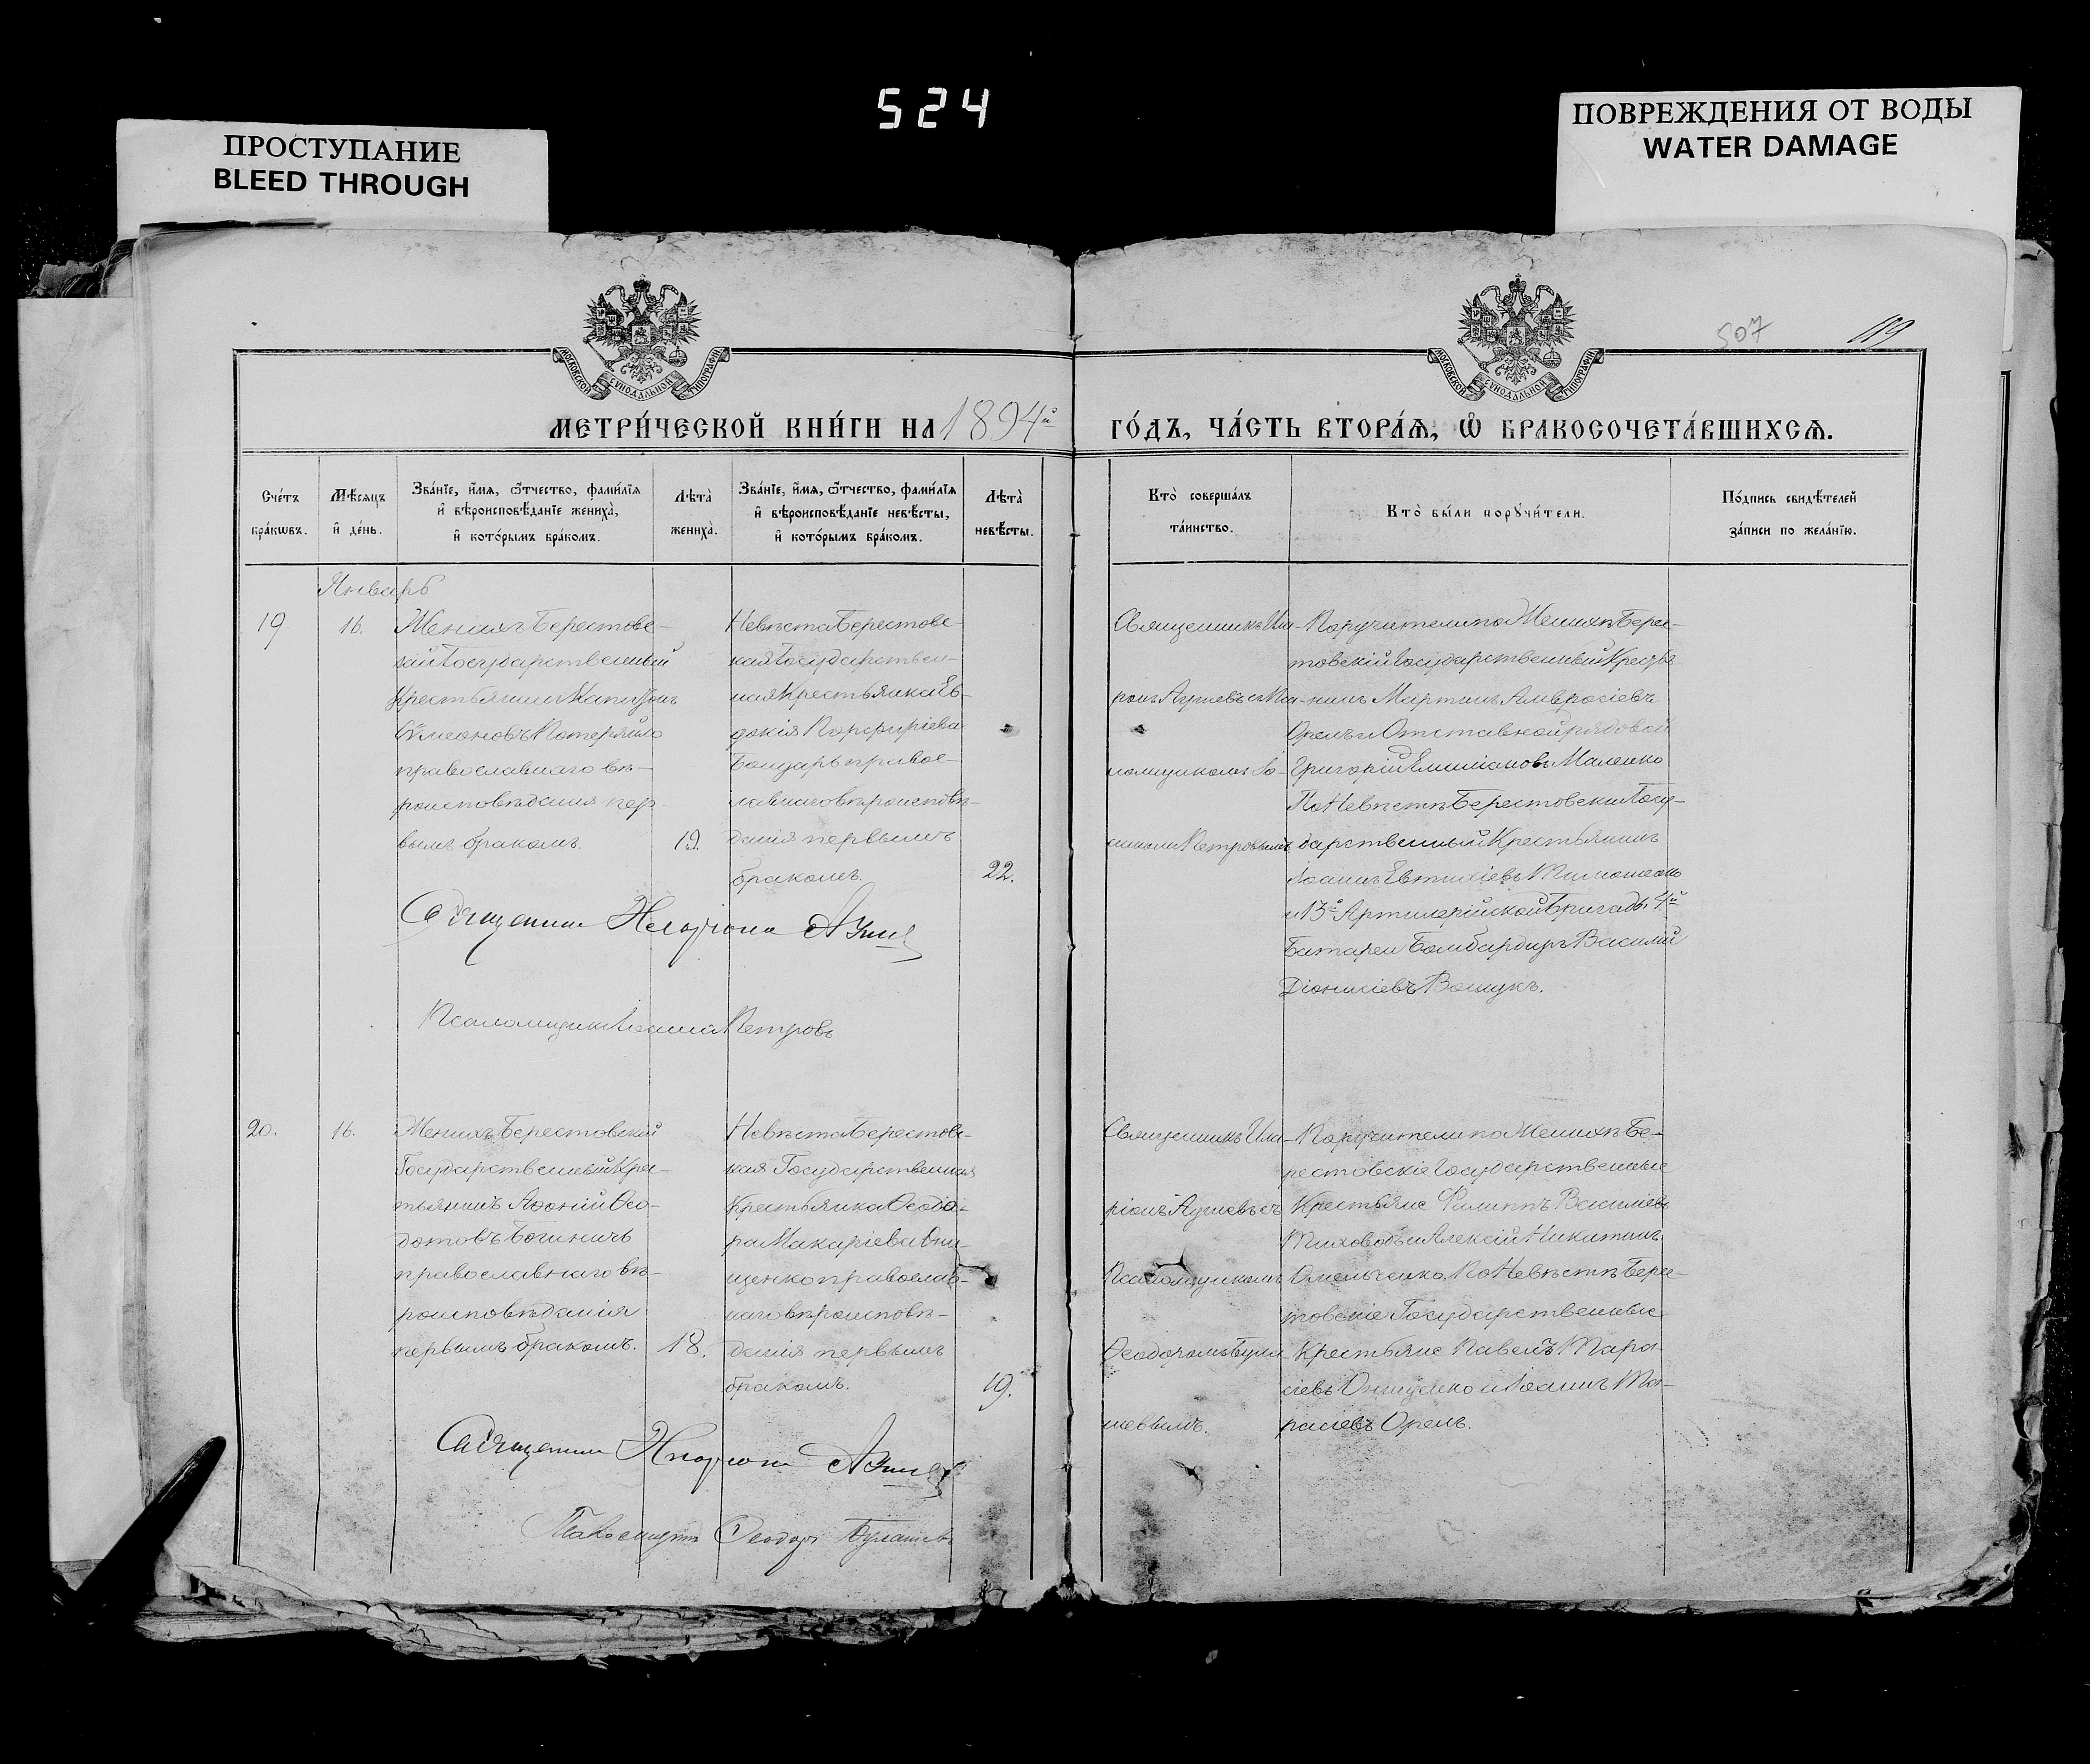 524
ПРОСТУПАНИЕ
BLEED THROUGH
ПОВРЕЖДЕНИЯ ОТ ВОДЫ
WATER DAMAGE
МОСКОВСКОЙ СѴНОДАЛЬНОЙ ТИПОГРАФІИ
МОСКОВСКОЙ СѴНОДАЛЬНОЙ ТИПОГРАФІИ
507
119
МЕТРИ́ЧЕСКОЙ КНИ́ГИ НА 1894й ГО́ДЪ, ЧА́СТЬ ВТОРА́Ѧ, Ѡ҆ БРАКОСОЧЕТА́ВШИХСѦ.
Сче́тъ
бра́кѡвъ.
Мѣ́сяцъ
и҆ де́нь.
Зва́нїе, и҆́мѧ, ѻ҆́тчество, фами́лїѧ
и҆ вѣроисповѣ́данїе жениха̀,
и҆ кото́рымъ бра́комъ.
Лѣта̀
жениха̀.
Зва́нїе, и҆́мѧ, ѻ҆́тчество, фами́лїѧ
и҆ вѣроисповѣ́данїе невѣ́сты,
и҆ кото́рымъ бра́комъ.
Лѣта̀
невѣ́сты.
Кто̀ соверша́лъ
та́инство.
Кто̀ бы́ли порꙋчи́тели.
По́дпись свидѣ́телей
за́писи по жела́нїю.
Январь
19
16.
Женихъ Берестов-
кій Государственный
Крестьянинъ Капитонъ
Сѵмеоновъ Потеряйло
православнаго вѣ-
роисповѣданія пер-
вымъ бракомъ.
19.
Невѣста Берестовс-
кая Государствен-
ная Крестьянка Ев-
докія Порфиріева
Бондарь правос-
лавнаго вѣроисповѣ-
данія первымъ
бракомъ.
22.
Священникъ Ила-
ріонъ Агриевъ съ Пса-
ломщикомъ Іо-
анномъ Петровымъ
Поручители по Женихѣ Берес-
товскій Государственный Крестья-
нинъ Мартинъ Амвросіевъ
Орелъ и Отставной рядовой
Григорій Емиліановъ Маленко
По Невѣстѣ Берестовскій Госу-
дарственный Крестьянинъ
Іоаннъ Евтихіевъ
и 13й Артилерійской Бригады 4й
Батареи Бомбардиръ Василій
Діонисіевъ Вощукъ.
Священникъ Иларіонъ
Псаломщикъ Іоаннъ Петровъ
20.
16.
Женихъ Берестовскій
Государственный Крес-
тьянинъ Аѳоній Ѳео-
дотовъ Богиничъ
православнаго вѣ-
роисповѣданія
первымъ бракомъ.
18.
Невѣста Берестовс-
кая Государственная
Крестьянка Ѳеодо-
ра Макаріева Они-
щенко православ-
наго вѣроисповѣ-
данія первымъ
бракомъ.
19.
Священникъ Ила-
ріонъ Агриевъ съ
Псаломщикомъ
Ѳеодоромъ Була-
шевымъ.
Поручители по Женихѣ Бе-
рестовскіе Государственные
Крестьяне Филиппъ Василіевъ
Тиховодъ и Алексій Никитинъ
Омельченко По Невѣстѣ Берес-
товскіе Государственные
Крестьяне Павелъ Тара-
сіевъ Онищенко и Іоаннъ Та-
расіевъ Орелъ.
Священникъ Иларіонъ
Псаломщикъ Ѳеодоръ Булашевъ